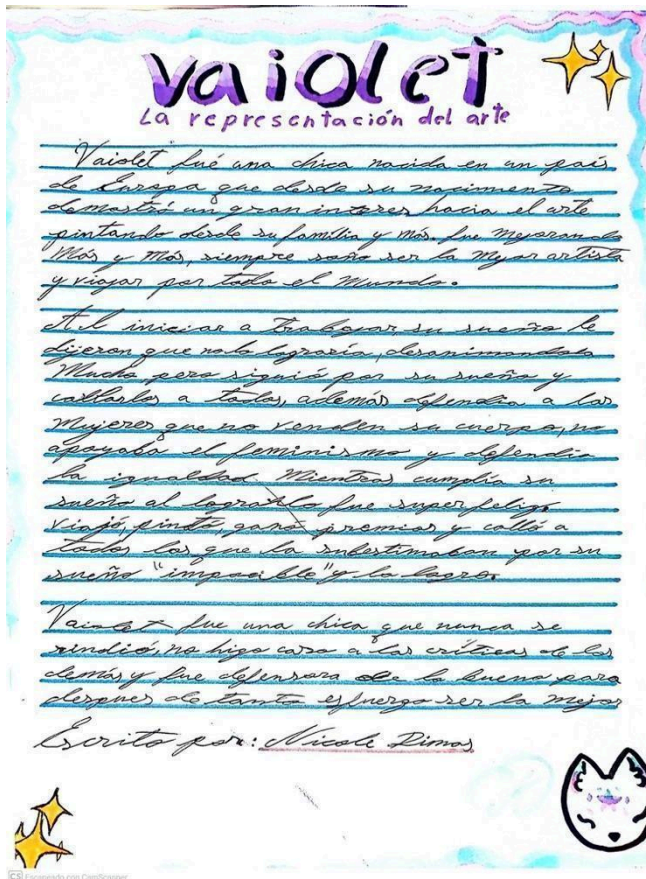 vaiolet
La representación del arte
Vaiolet fué una chica nacida en un país
de Europa que desde su nacimiento
demostró un gran interes hacia el arte
pintando desde su família y más. fue mejorando
Más y más, siempre soño ser la mejor artista
y viajar por todo el mundo.
Al iniciar a trabajar, su sueño le
dijeron que no lo lograría, desanimandola
Mucho pero siguió por su sueño y
callarlos a todos, además defendia a las
Mujeres que no venden su cuerpo, no
apoyaba el feminismo y defendia
la igualdad. Mientras cumplía su
sueño al lograrlo fue super feliz.
Viajó, pintó, ganó premios y calló a
todos los que la subestimaban por su
sueño "imposible" y lo logro.
Vaiolet fue una chica que nunca se
rindió, no hizo caso a las críticas de los
demás y fue defensora de lo bueno para
despues de tanto esfuerzo ser la mejor
Escrito por: Nicole Dimas
CS Escaneado con CamScanner